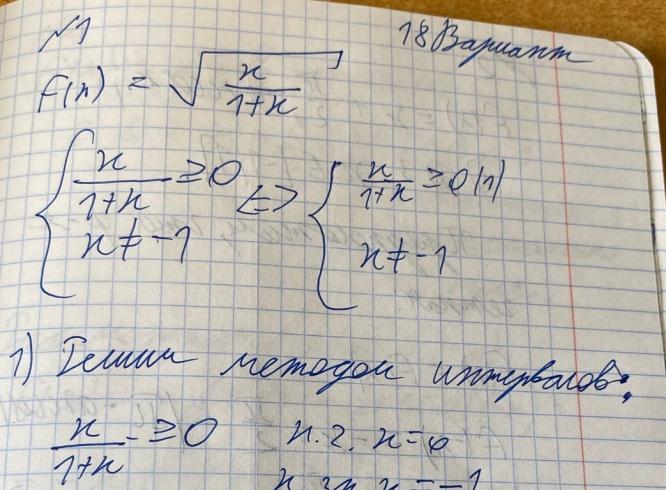 №1
18 Вариант
f(x) = √(x/(1+x))
{ x/(1+x) ≥ 0 <=> { x/(1+x) ≥ 0 (1)
x ≠ -1 x ≠ -1
1) Решим методом интервалов:
x/(1+x) ≥ 0 н.г. x = 0
x = -1